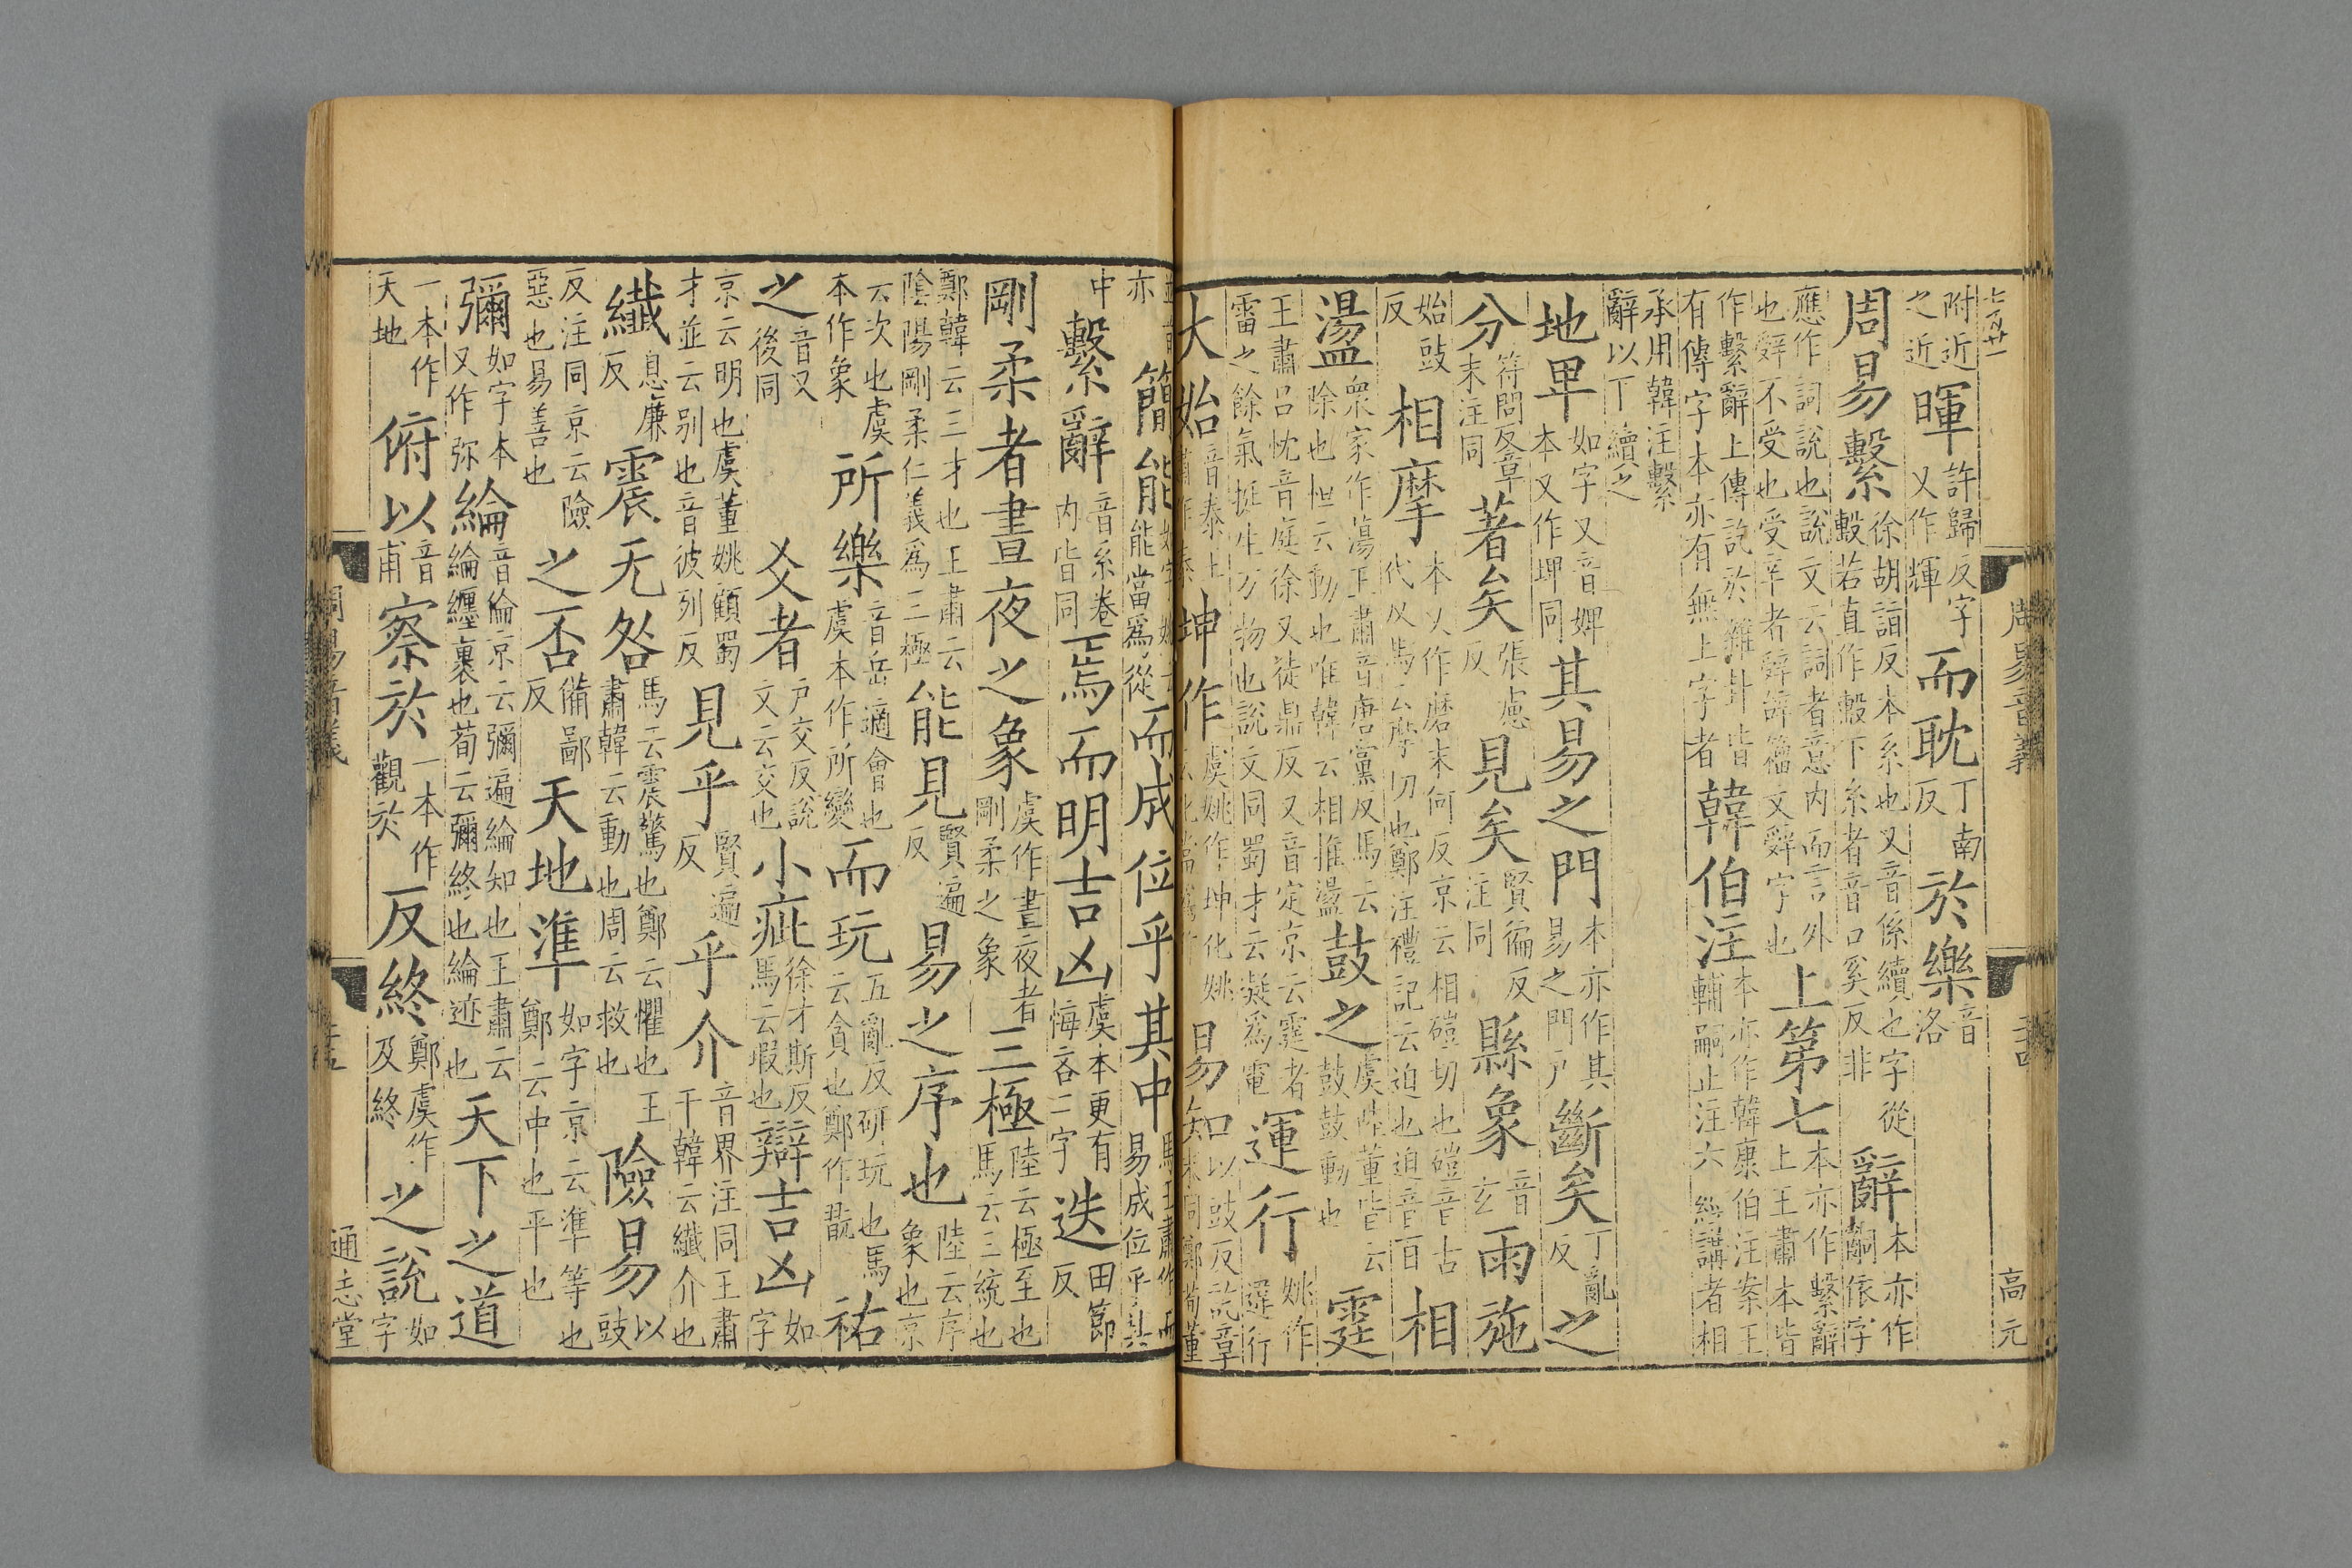 周易音義 高元
附近之近 暉許歸反字又作輝 而耽丁南反 於樂音洛
周易繫徐胡詣反本系也又音係續也字從毄若直作毄下系者音口奚反非 辭本亦作嗣依字
應作詞說也說文云詞者意內而言外也辤不受也受辛者辤辭籒文辤字也 上第七本亦作繫辭上王肅本皆
作繫辭上傳訖於雜卦皆有傳字本亦有無上字者 韓伯注本亦作韓康伯注案王輔嗣止注六經講者相
承用韓注繫辭以丁續之
地卑如字又音婢本又作埤同 其易之門本亦作其易之門戶 斷矣丁亂反 之
分符問反章末注同 著矣張慮反 見矣賢徧反注同 縣象音玄 雨施
始豉反 相摩本以作磨末何反京云相磑切也磑音古代反馬云摩切也鄭注禮記云迫也迫音百 相
盪衆家作蕩王肅音唐黨反馬云除也桓云動也唯韓云相推盪 鼓之虞陸董皆云鼓鼓動也 霆
王肅呂忱音庭徐又徒鼎反又音定京云霆者雷之餘氣挺生万物也說文同蜀才云凝爲電 運行姚作違行
大始音泰 坤作虞姚作坤化姚 易知以豉反訖章末同鄭荀董
亦 簡能 能當爲從 而成位乎其中馬王肅作而易成位乎其
中 繫辭音系卷内皆同 焉而明吉凶虞本更有悔吝二字 迭田節反
剛柔者晝夜之象虞作晝夜者剛柔之象 三極陸云極至也馬云三統也
鄭韓云三才也王肅云陰陽剛柔仁義爲三極 能見賢遍反 易之序也陸云序象也京
云次也虞本作象 所樂音岳適會也虞本作所變 而玩五亂反研玩也馬云貪也鄭作翫 祐
之音又後同 爻者户交反說文云交也 小疵徐才斯反馬云瑕也 辯吉凶如字
京云明也虞董姚顧蜀才並云别也音彼列反 見乎賢遍反 乎介音界注同王肅干韓云纖介也
纖息廉反 震无咎馬云震驚也鄭云懼也王肅韓云動也周云救也 險易以豉
反注同京云險惡也易善也 之否備鄙反 天地準如字京云準等也鄭云中也平也
彌如字本又作弥 綸音倫京云彌遍綸知也王肅云綸纏裹也荀云彌終也綸迹也 天下之道
一本作天地 俯以音甫 察於一本作觀於 反終鄭虞作及終 之說如字
通志堂